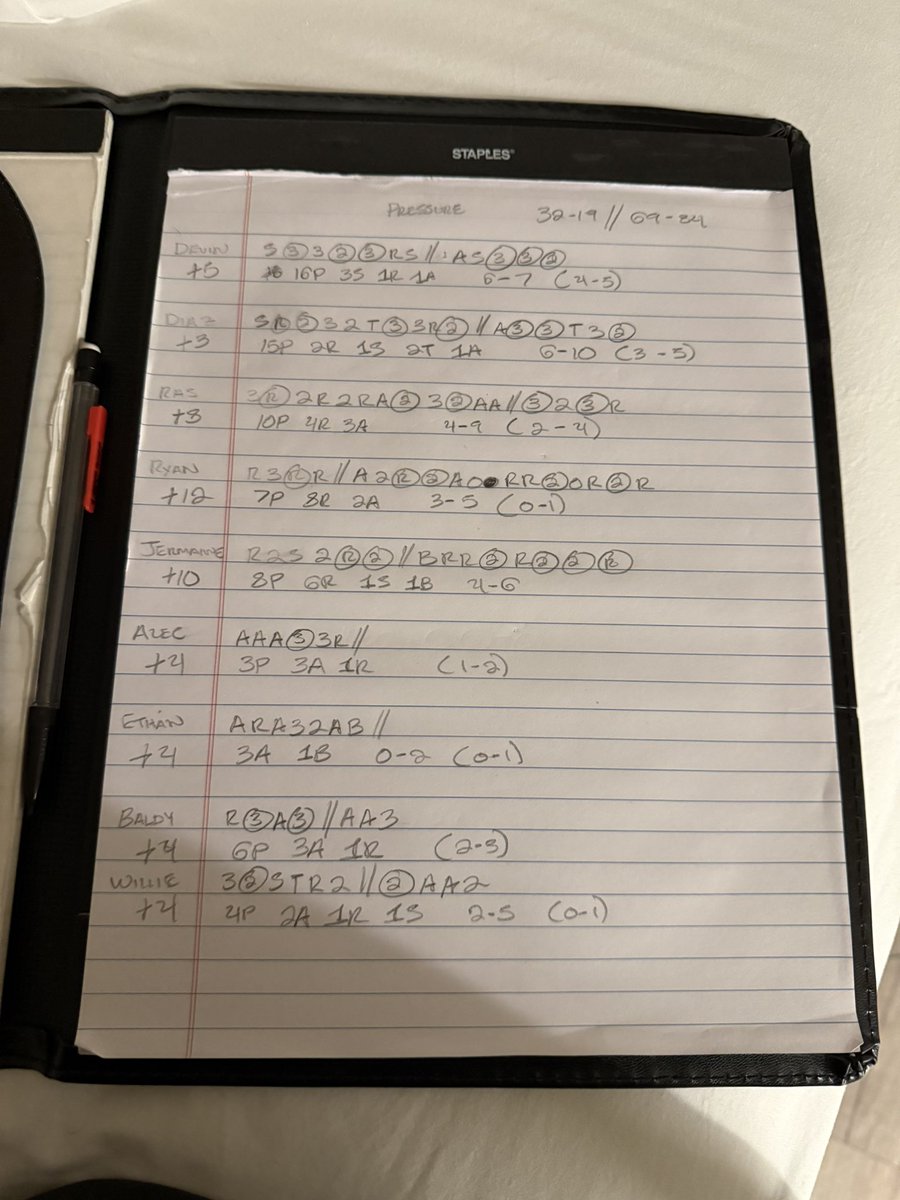 STAPLES
PRESSURE 32-19 // 69-34
DEVIN S 3 3 2 3 R S // A S 3 3 2
+5 16P 3S 1R 1A 6-7 (4-5)
DIAZ S R 2 3 2 T 3 3 R 2 // A 3 3 T 3 2
+3 15P 2R 1S 2T 1A 6-10 (3-5)
RAS 3 R 2 R 2 R A 2 3 2 A A // 3 2 3 R
+8 10P 4R 3A 4-9 (2-4)
RYAN R 3 R R // A 2 R 2 A O R R 2 O R 2 R
+12 7P 8R 2A 3-5 (0-1)
JERMAINE R 2 S 2 R 2 // B R R 2 R 2 2 R
+10 8P 6R 1S 1B 4-6
ALEC A A A 3 3 R //
+4 3P 3A 1R (1-2)
ETHAN A R A 3 2 A B //
+4 3A 1B 0-2 (0-1)
BALDY R 3 A 3 // A A 3
+4 6P 3A 1R (2-3)
WILLIE 3 2 S T R 2 // 2 A A 2
+4 4P 2A 1R 1S 2-5 (0-1)